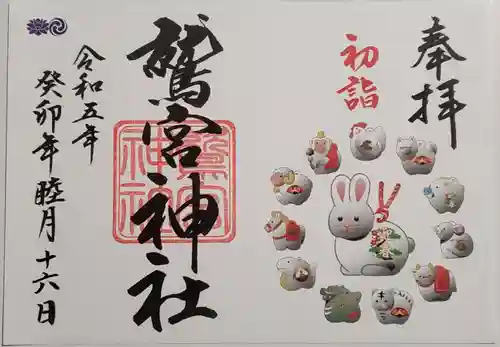 奉拝
初詣
鷲宮神社
令和五年
癸卯年睦月十六日